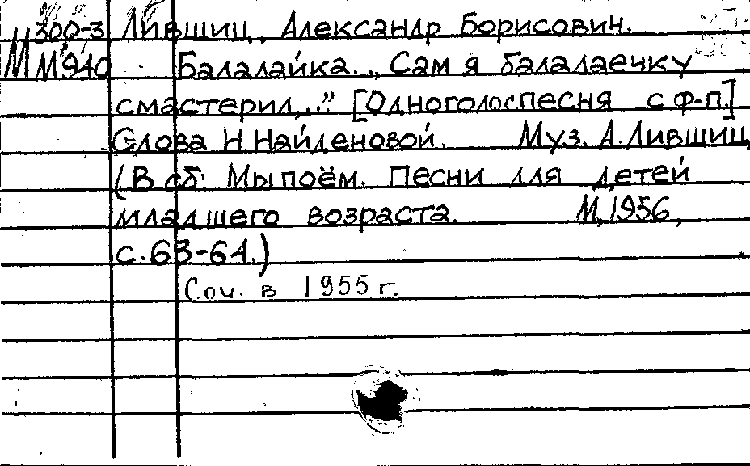 300-3 Лившиц, Александр Борисович.
М М940 Балалайка. „Сам я балалаечку
смастерил..." [Одноголос песня с ф-п.]
Слова Н. Найденовой. Муз. А. Лившиц
(В сб. Мы поём. Песни для детей
младшего возраста. М, 1956,
с. 63-64.)
Соч. в 1955 г.